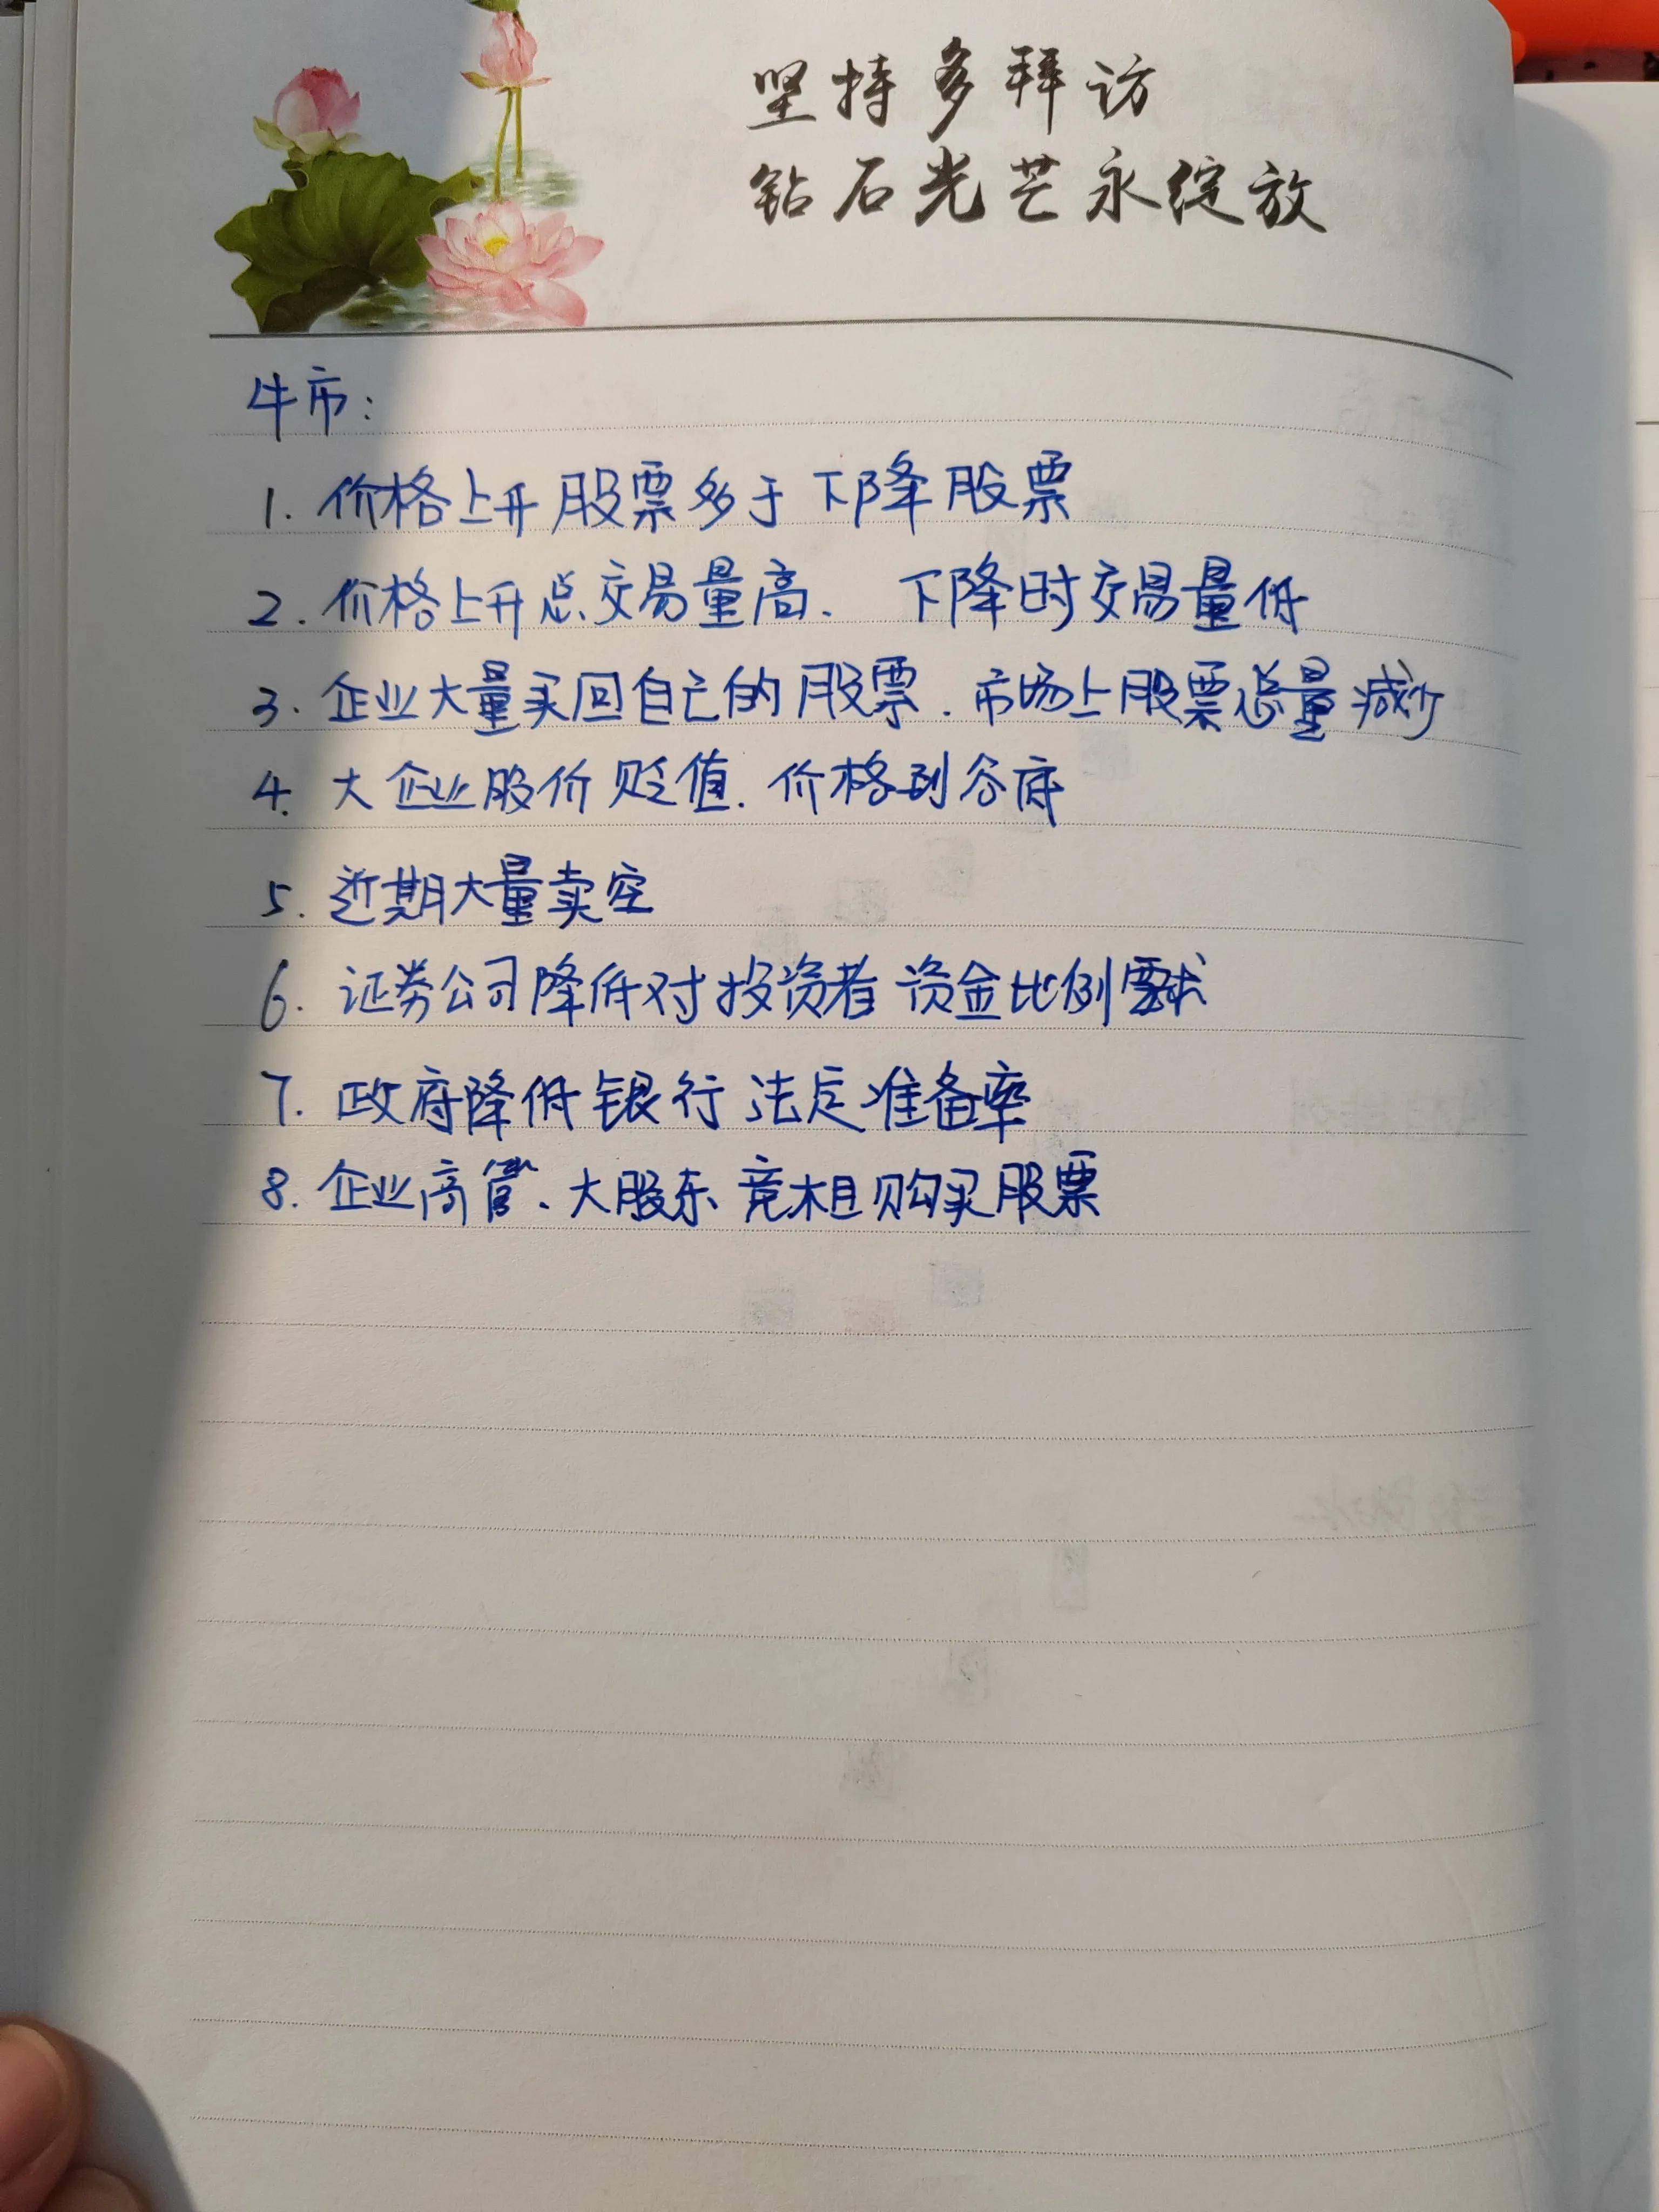 坚持多拜访
钻石光芒永绽放
牛市:
1. 价格上升股票多于下降股票
2. 价格上升总交易量高、下降时交易量低
3. 企业大量买回自己的股票、市场上股票总量减少
4. 大企业股价贬值、价格到谷底
5. 近期大量卖空
6. 证券公司降低对投资者资金比例需求
7. 政府降低银行法定准备率
8. 企业高管、大股东竞相购买股票